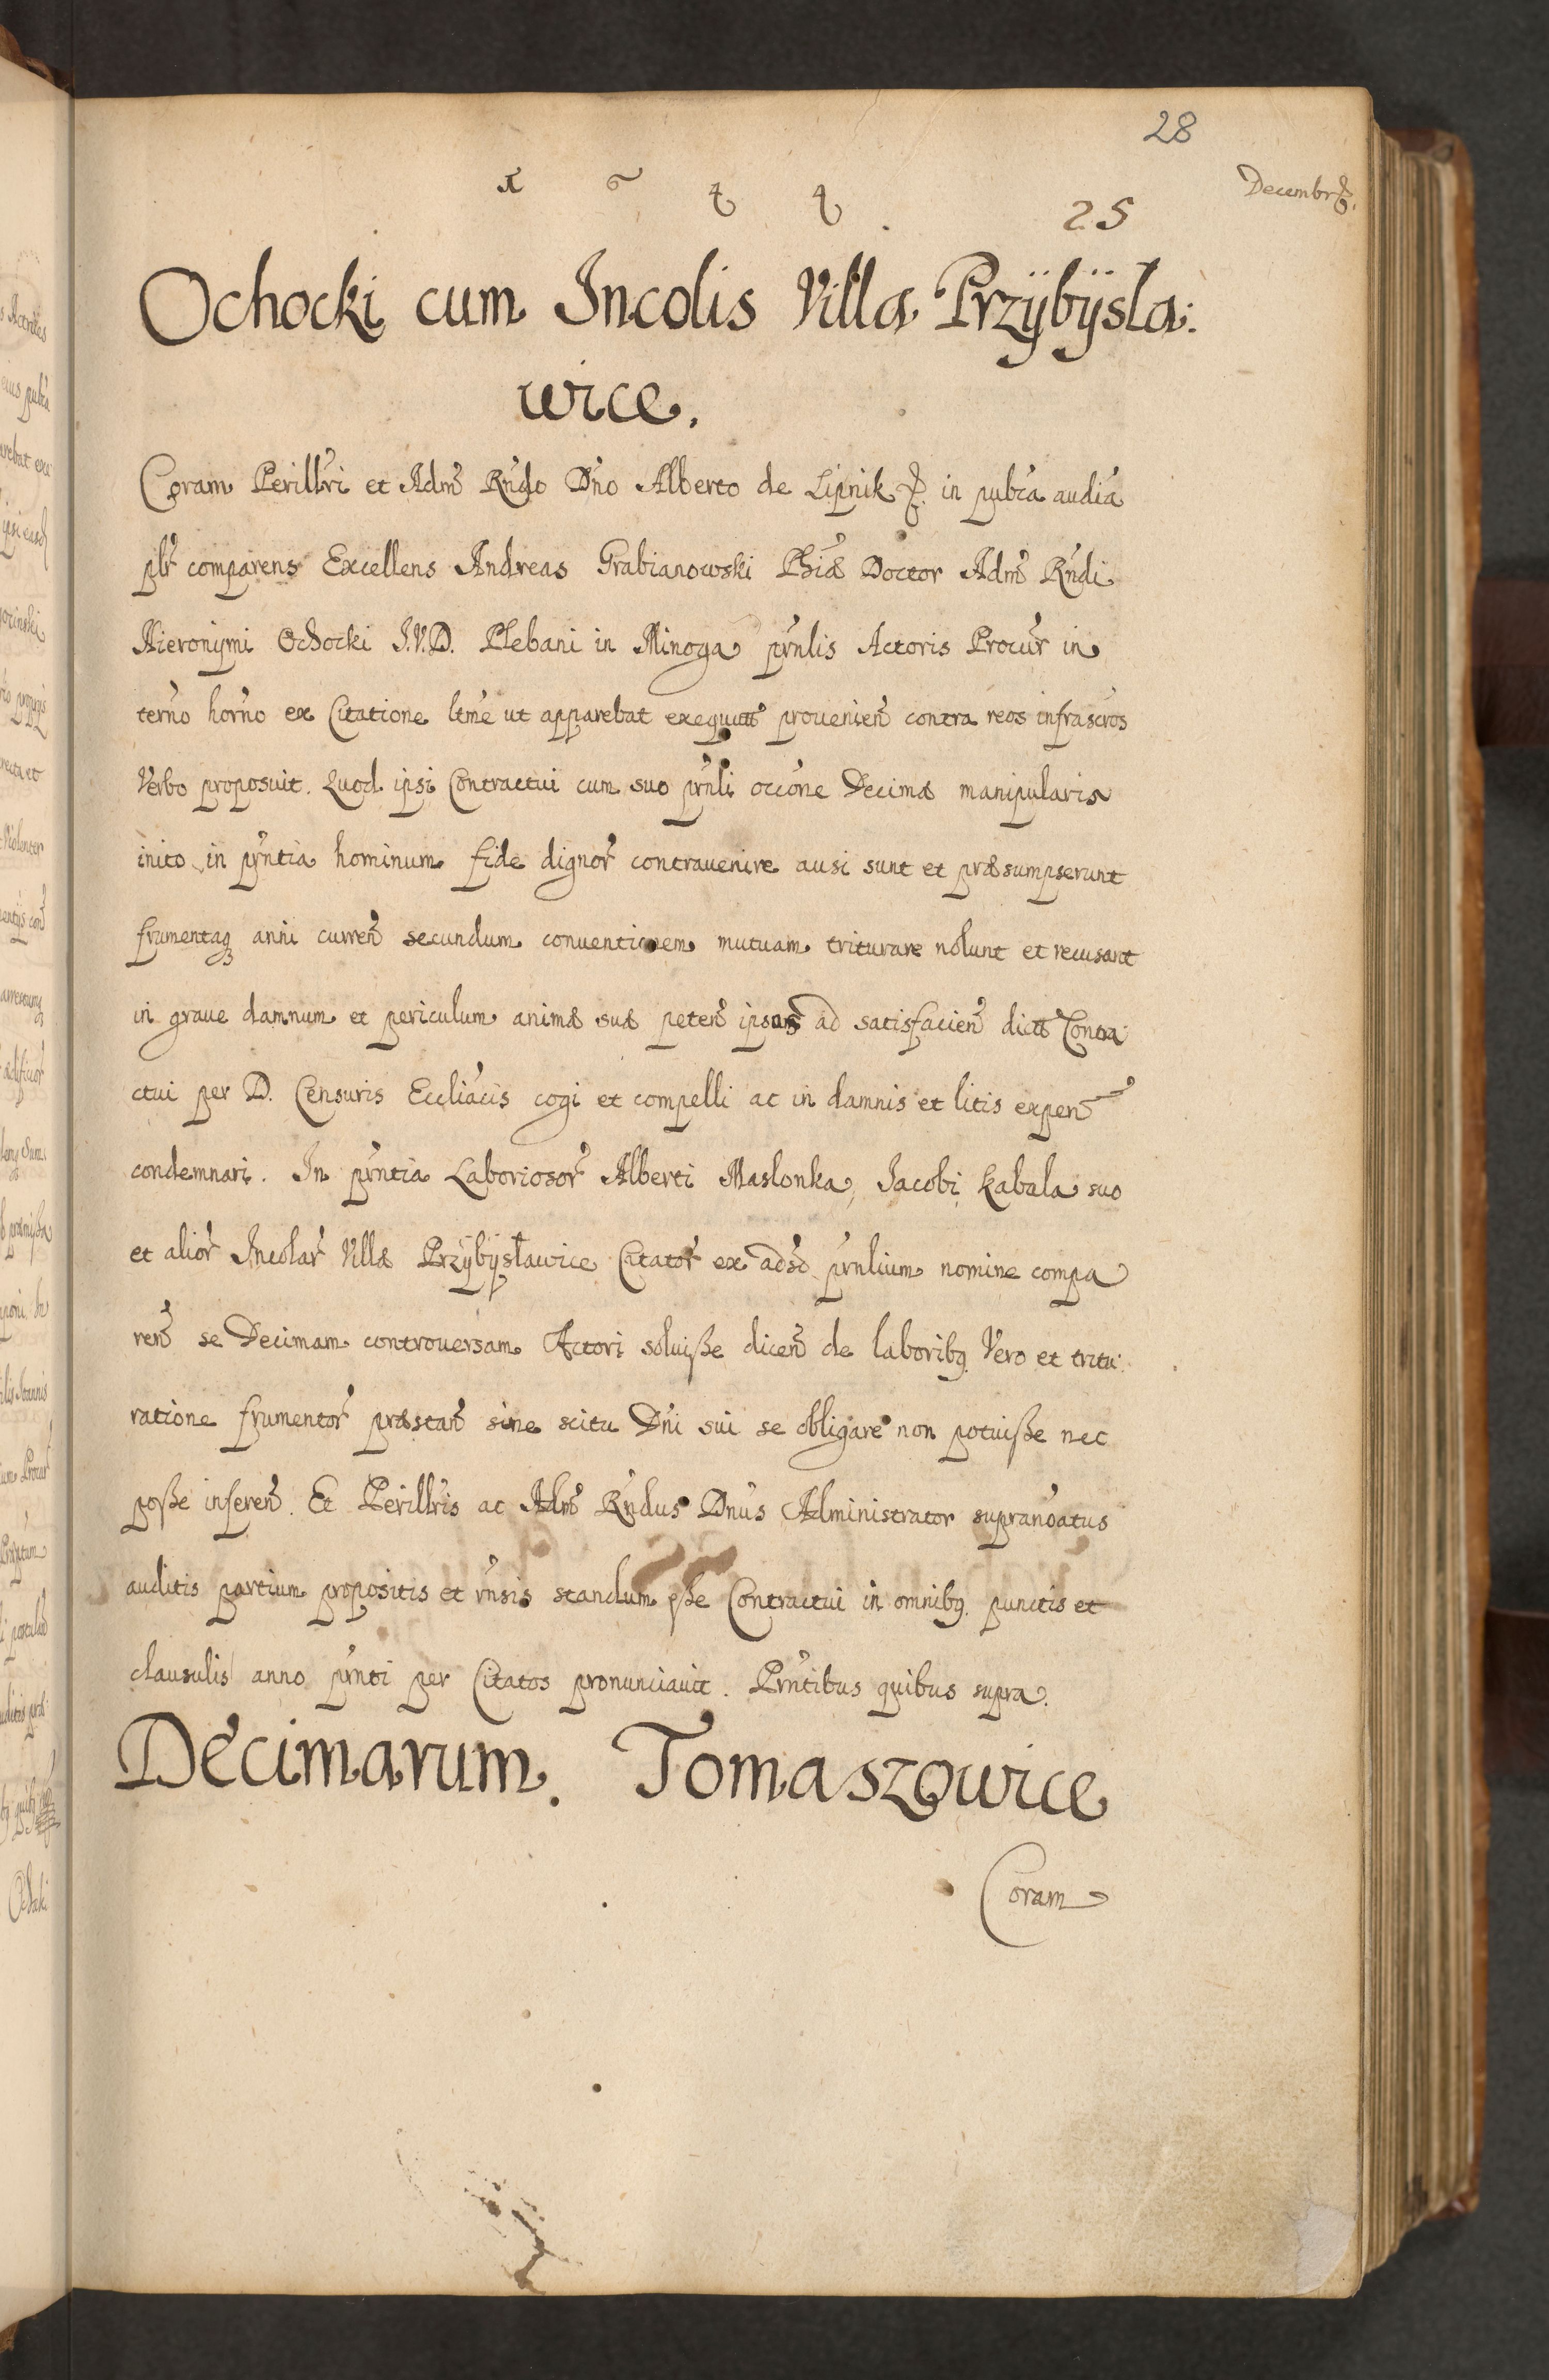 28
Decembr
25
Ochocki cum Incolis Villæ Przÿbÿsla:
wice.
Coram Perillri et Adm Rndo Dno Alberto de Lipnik in publca audia
plr comparens Excellens Andreas Grabianowski Phiæ Doctor Adm Rndi
Hieronÿmi Ochocki I.V.D. Plebani in Minoga prnlis Actoris Procur in
terno horno ex Citatione ltme ut apparebat exequut provenien contra reos infrascros
Verbo proposuit. Quod ipsi Contractui cum suo prnli occone Decimæ manipularis
inito in prntia hominum fide dignor contravenire ausi sunt et præsumpserunt
frumentaq anni curren secundum conventionem mutuam triturare nolunt et recusant
in grave damnum et periculum animæ suæ peten ipsos ad satisfacien dict Contra
ctui per D. Censuris Eccliacis cogi et compelli ac in damnis et litis expen
condemnari. In prntia Laboriosor Alberti Maslonka, Iacobi Kabala suo
et alior Incolar Villæ Przÿbÿsławice Citator ex adso prnlium nomine compa
ren se Decimam controversam Actori solviße dicen de laboribq Vero et tritu:
ratione frumentor præstan sine scitu Dni sui se obligare non potuiße nec
poße inferen. Et Perillris ac Adm Rndus Dnus Administrator supranoatus
auditis partium propositis et rnsis standum eße Contractui in omnibq punctis et
clausulis anno prnti per Citatos pronunciavit. Prntibus quibus supra.
Decimarum. Tomaszowice
Coram